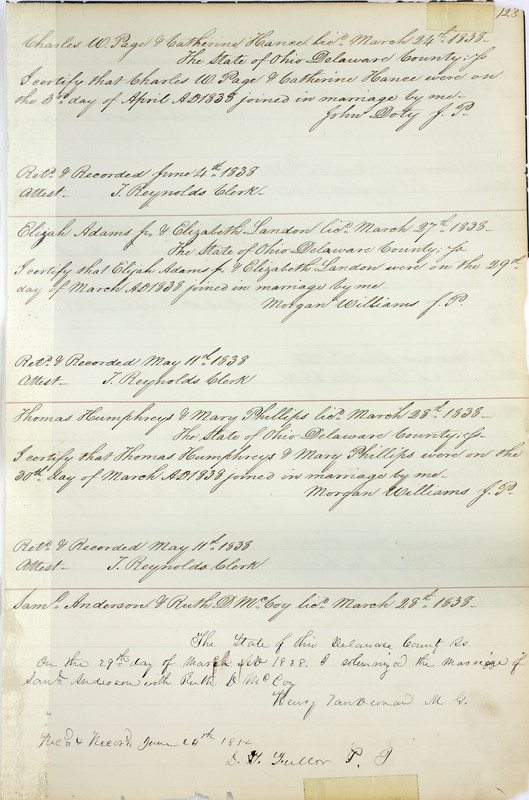 123
Charles W. Page & Catherine Hance licd. March 24th. 1838-
The State of Ohio Delaware County; ss
I certify that Charles W. Page & Catherine Hance were on
the 3rd. day of April AD 1838 joined in marriage by me-
John Doty J. P.
Retd. & Recorded June 4th. 1838
Attest- T. Reynolds Clerk-
Elijah Adams jr. & Elizabeth Landon licd. March 27th. 1838-
The State of Ohio Delaware County; ss
I certify that Elijah Adams jr. & Elizabeth Landon were on the 29th
day of March AD 1838 joined in marriage by me-
Morgan Williams J. P.
Retd. & Recorded May 11th. 1838
Attest- T. Reynolds Clerk
Thomas Humphreys & Mary Phillips licd. March 28th. 1838-
The State of Ohio Delaware County; ss
I certify that Thomas Humphreys & Mary Phillips were on the
30th. day of March AD 1838 joined in marriage by me-
Morgan Williams J. P.
Retd. & Recorded May 11th. 1838
Attest- T. Reynolds Clerk
Saml. Anderson & Ruth D. McCoy licd. March 28th. 1838-
The State of Ohio Delaware County ss
On the 29th day of March AD 1838. I solemnized the marriage of
Saml Anderson with Ruth D McCoy
Henry Vandeman M G.
Recd & Record June 14th